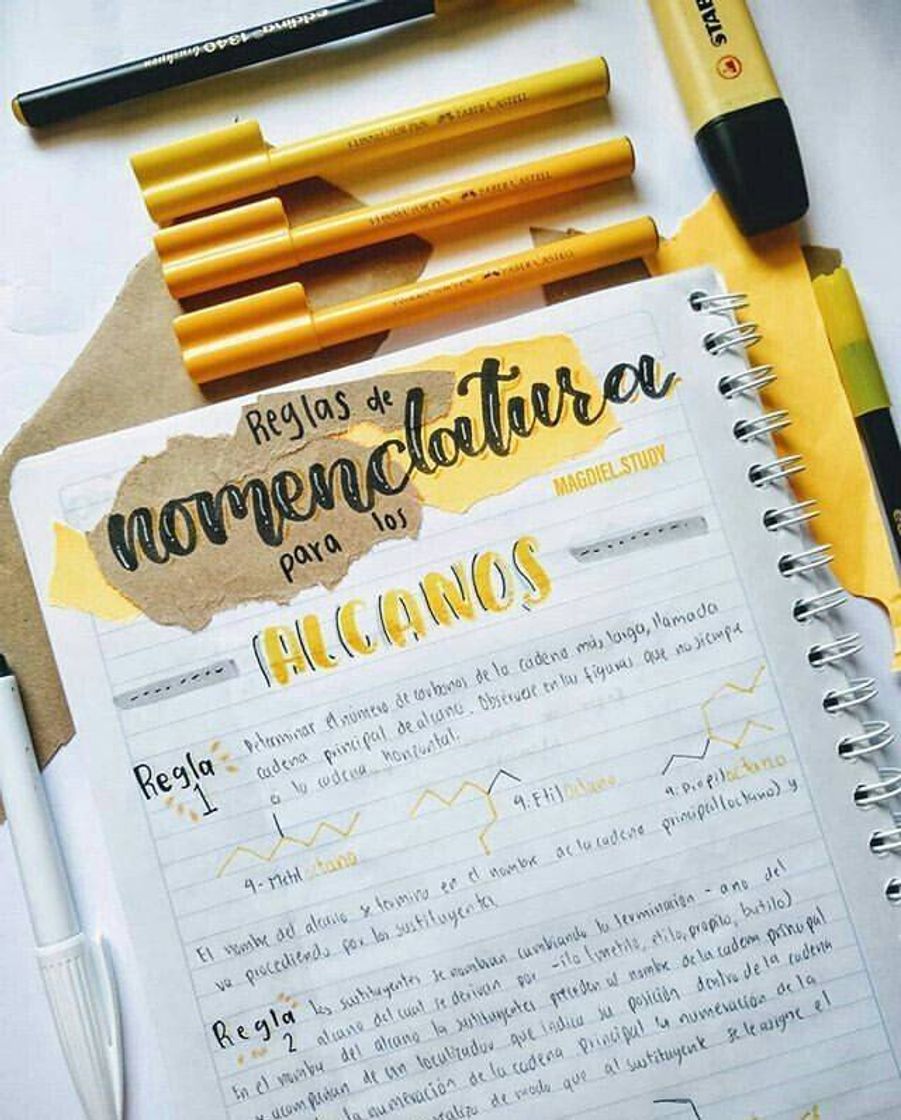 edding 1340 brushpen
STAB
CONNECTOR PEN FABER-CASTELL
CONNECTOR PEN FABER-CASTELL
CONNECTOR PEN FABER-CASTELL
Reglas de
nomenclatura
para los
MAGDIEL.STUDY
ALCANOS
Regla
1
Determinar el número de carbonos de la cadena más larga, llamada
cadena principal de alcano. Observese en las figuras que no siempre
a la cadena horizontal.
4-Metil octano
4-Etil octano
4-propil octano
El nombre del alcano se termina en el nombre de la cadena principal (octano) y
va procediendo por los sustituyentes
Regla
2
los sustituyentes se nombran cambiando la terminación -ano del
alcano del cual se derivan por -ilo (metilo, etilo, propilo, butilo)
En el nombre del alcano la sustituyentes preceden al nombre de la cadena principal
y acompañan de un localizador que indica su posición dentro de la cadena
la numeración de la cadena principal la numeración de la
realiza de modo que al sustituyente se le asigne el